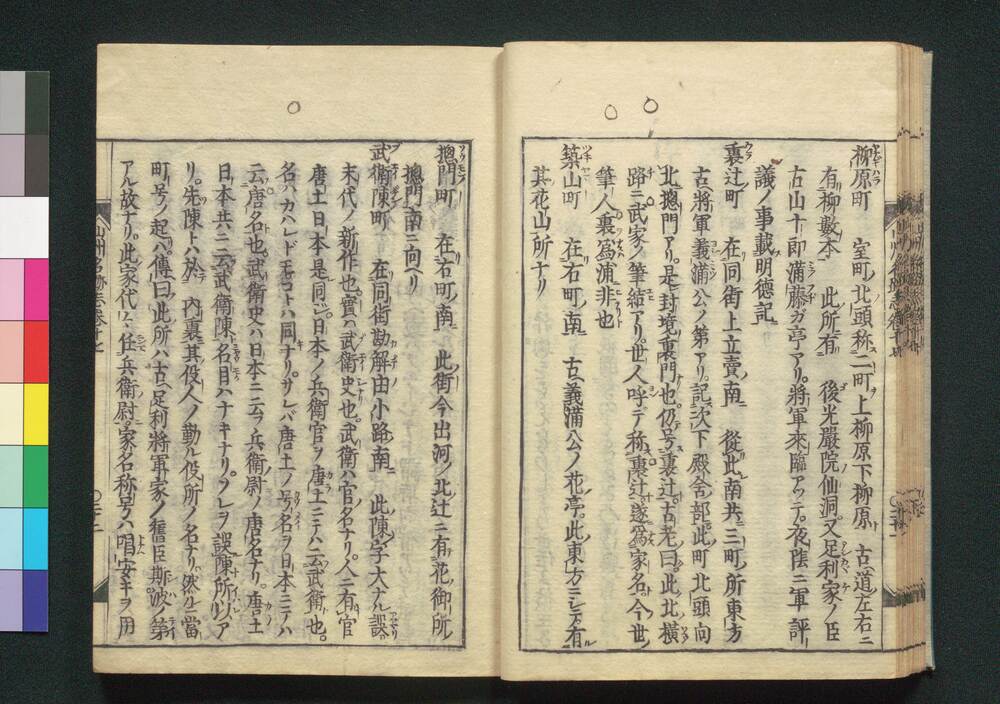 柳原町　室町ノ北ノ頭称二町ヲ上柳原下柳原ト　古ヘ道ノ左右ニ
有柳数本　此所有　後光嚴院ノ仙洞又足利家ノ臣
古山十郎満藤ガ亭アリ。將軍來臨アツテ。夜陰ニ軍評
議ノ事載明徳記
裏辻町　在同街上立賣南　從此南共ニ三町ノ所東方
古ヘ將軍義満公ノ第アリ。記次下殿舎部此町北頭向
北摠門アリ。是封境ノ裏門也。仍号裏辻。古老曰。此北横
路ニ武家ノ筆結アリ。世人呼デ称裏辻。遂爲家名。今世
筆人裏爲浦非也
築山町　在右町ノ南　古ヘ義満公ノ花亭。此東方ニシテ有
其花山所ナリ
摠門町　在右町ノ南　此街今出河ノ北ノ辻ニ有花御所ノ
摠門南ニ向ヘリ
武衛陳町　在同街勘解由小路南　此陳ノ字大ナル誤
末代ノ新作也實ハ武衛史也。武衛ハ官名ナリ。人ニ有官
唐土日本是同ジ。日本ノ兵衛官ヲ唐土ニテハ云武衛也。
名ハカハレドモコトハ同ナリ。サレバ唐土ノ号名ヲ日本ニテハ
云唐名也。武衛史ハ日本ニ云フ兵衛尉ノ唐名ナリ。唐土
日本共ニ云武衛陳名目ハナキナリ。コレヲ誤陳所以ア
リ。先陳トハ於内裏其役人ノ勤ル役所ノ名ナリ。然ルニ當
町号ノ起ハ。傳曰此所ハ古ヘ足利將軍家ノ舊臣斯波ノ第
アル故ナリ。此家代々任兵衛尉。家名称号ハ唱安キヲ用